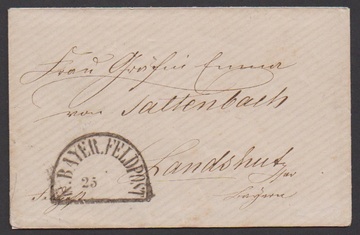 Frau Gräfin Emma
von Tattenbach
Landshut
Bayern
K. BAYER. FELDPOST
25